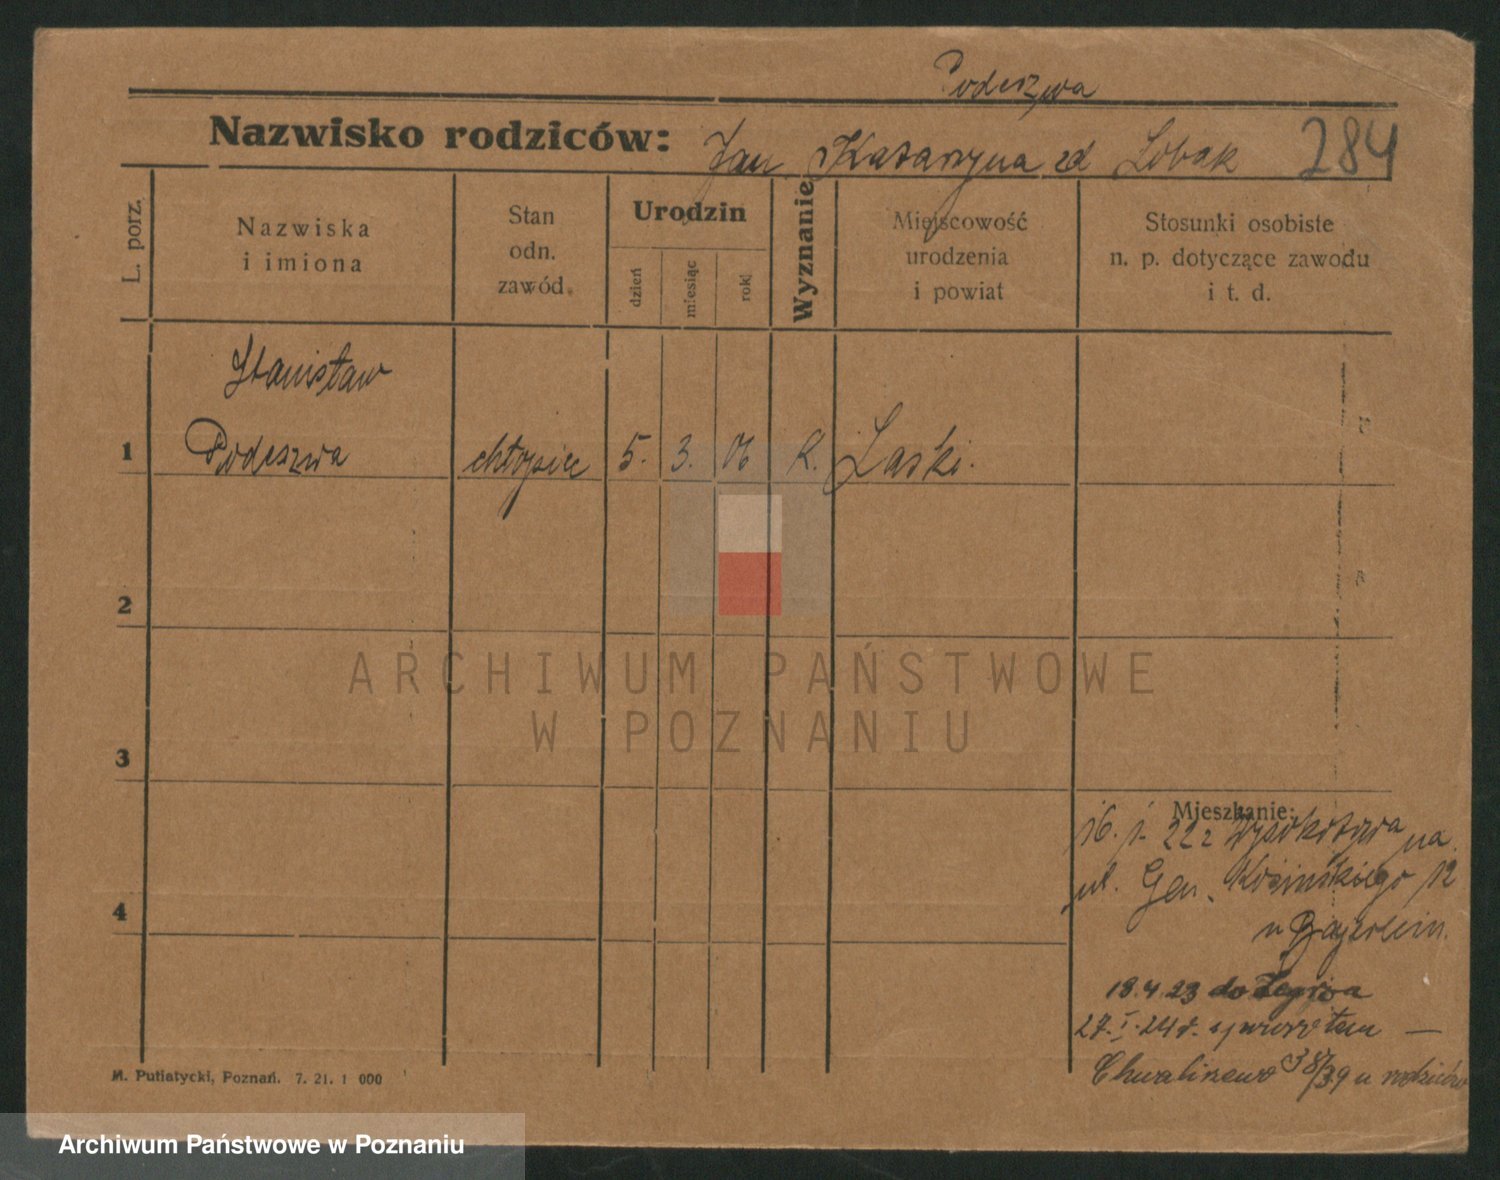 Podeszwa
Nazwisko rodziców: Jan Katarzyna zd Lobak 284
L. porz.
Nazwiska
i imiona
Stan
odn.
zawód.
Urodzin
dzień
miesiąc
rok
Wyznanie
Miejscowość
urodzenia
i powiat
Stosunki osobiste
n. p. dotyczące zawodu
i t. d.
Stanisław
1 Podeszwa chłopiec 5. 3. 06 K. Laski.
2
3
4
Mieszkanie:
16. 1. 22 z Wysokotowa na
ul. Gen. Kosinskiego 12
u Bajerlein.
18.4.23 do Zegrza
27. I. 24 r. spowrotem —
Chwaliszewo 38/39 u rodziców
M. Putiatycki, Poznań. 7. 21. 1 000
ARCHIWUM PAŃSTWOWE
W POZNANIU
Archiwum Państwowe w Poznaniu